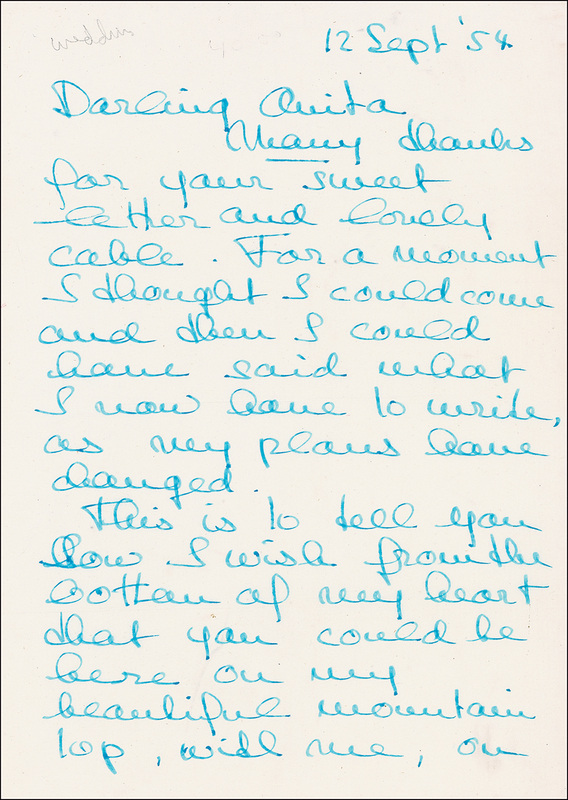 wedding
12 Sept '54
Darling Anita
Many thanks
for your sweet
letter and lovely
cable. For a moment
I thought I could come
and then I could
have said what
I now have to write,
as my plans have
changed.
This is to tell you
how I wish from the
bottom of my heart
that you could be
here on my
beautiful mountain
top, with me, on